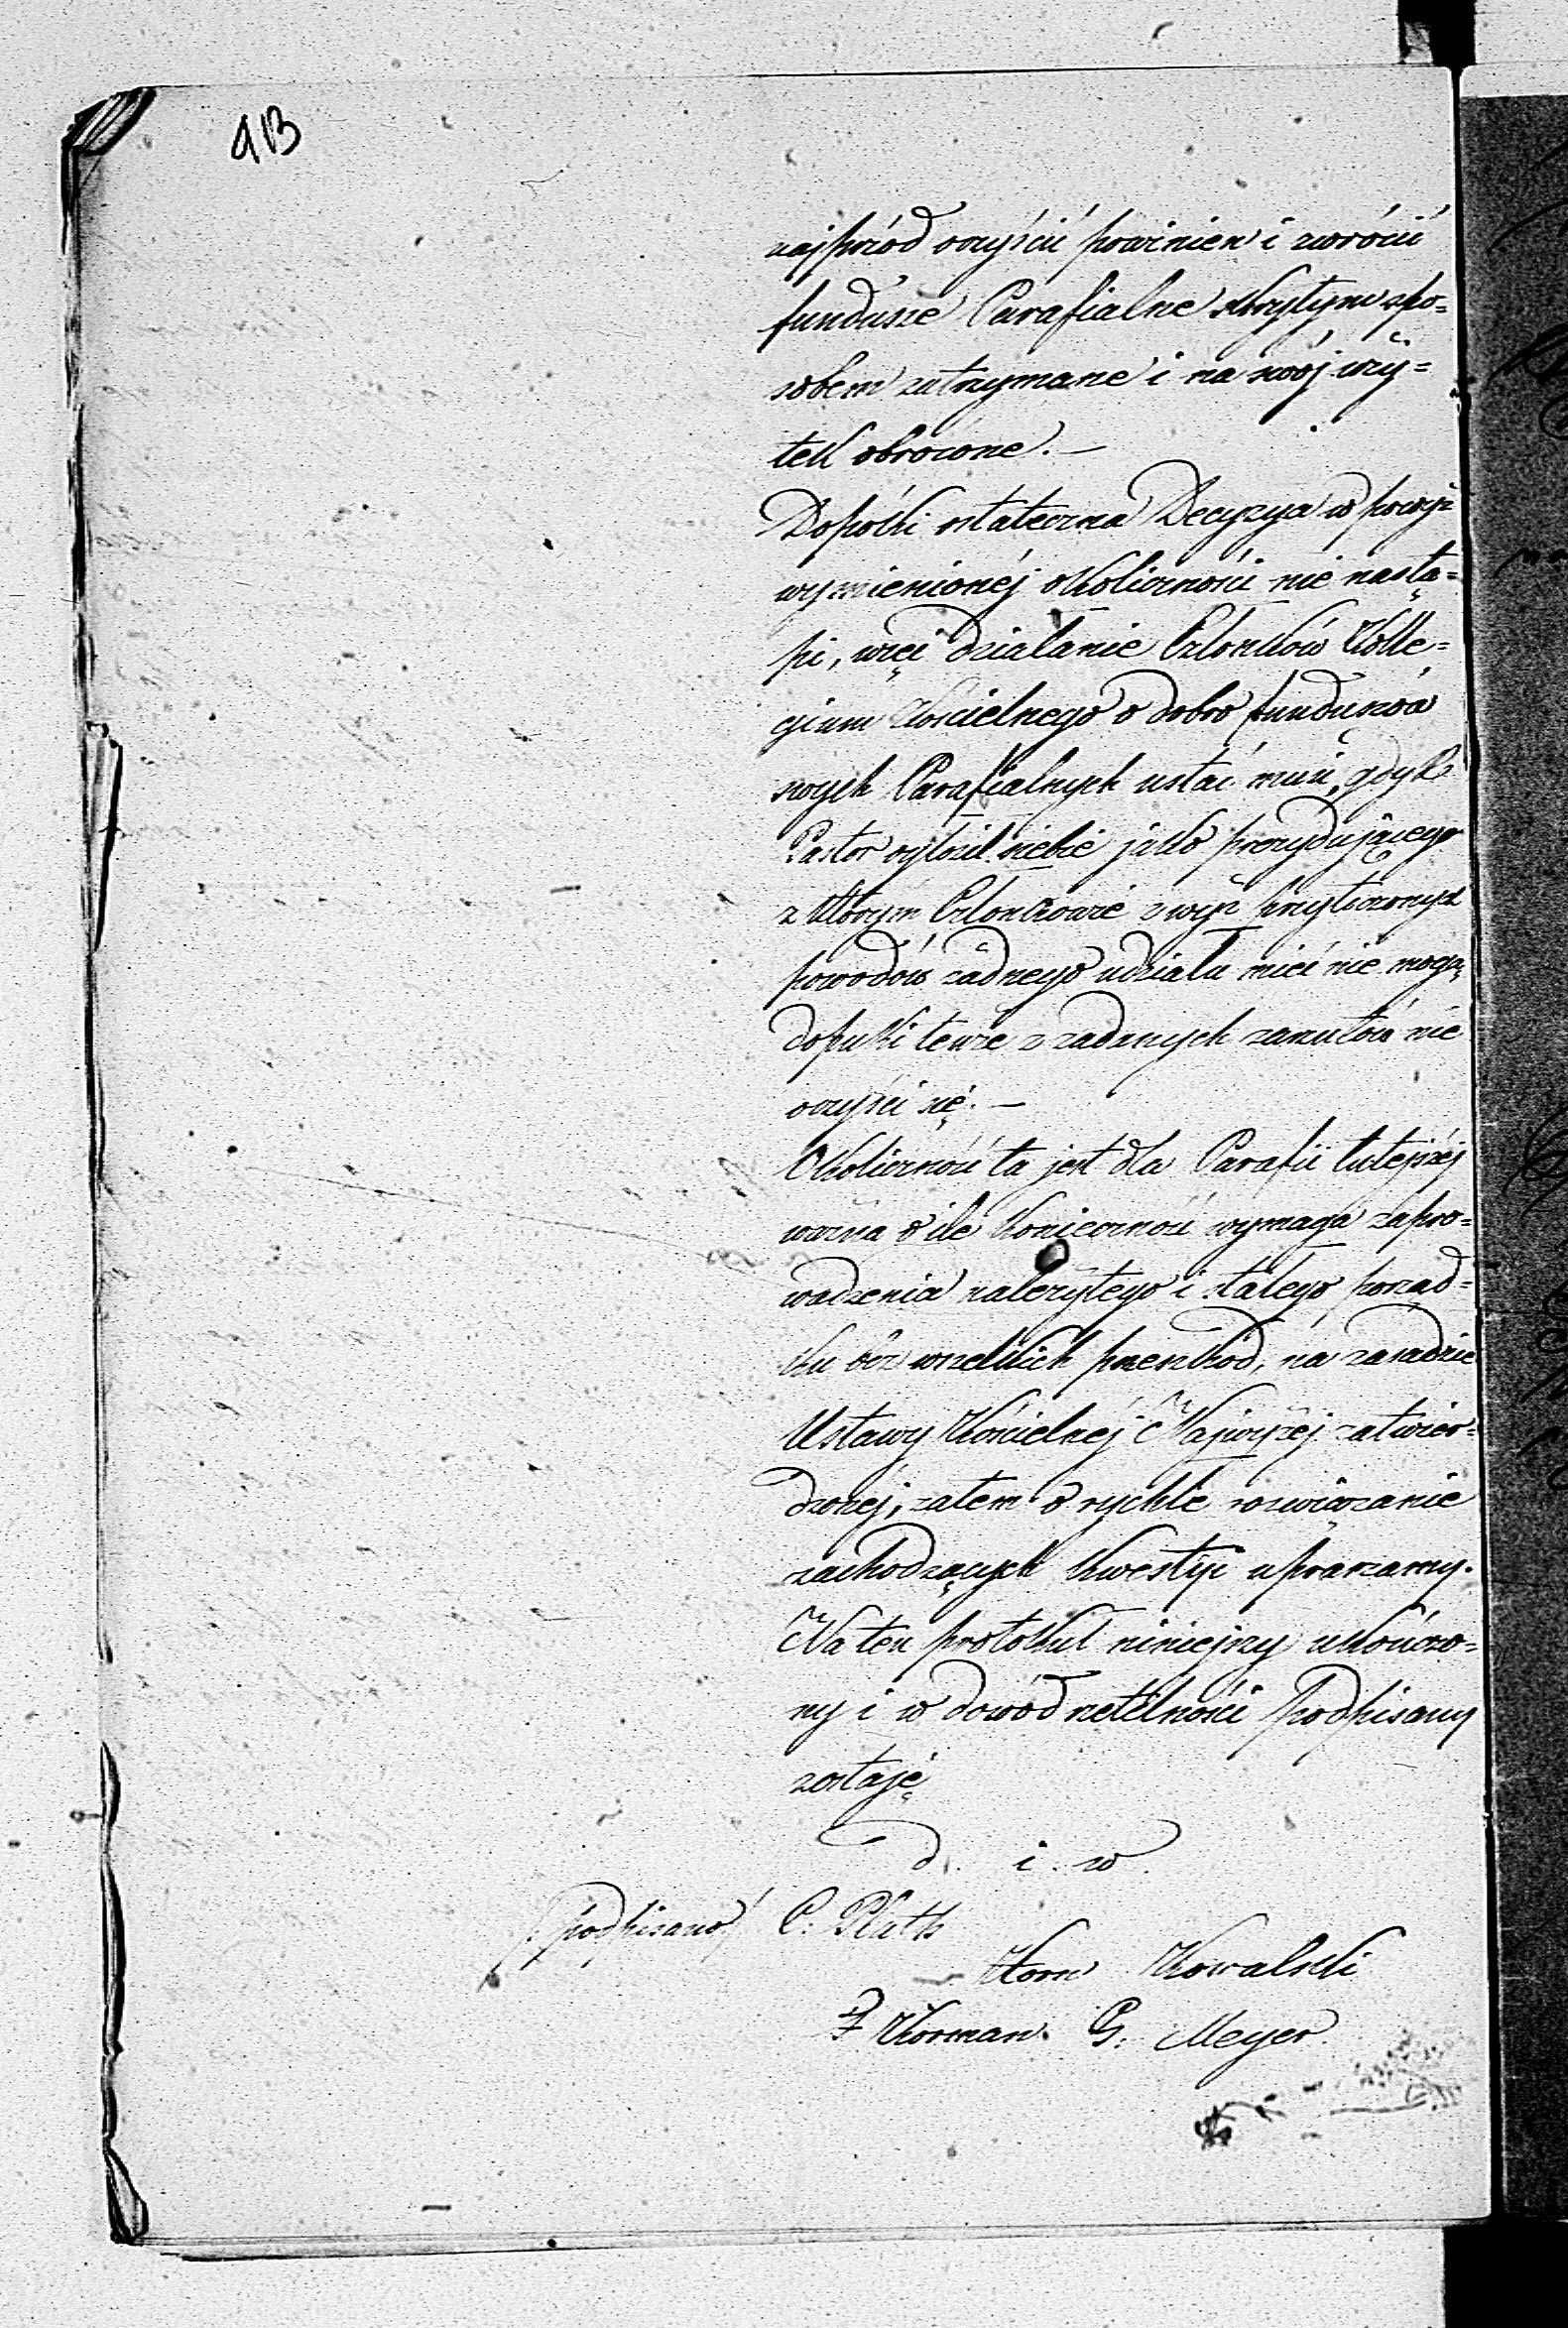 413
najpród oczyścić powinien i zwrócić
fundusze Parafialne skrytym spo=
sobem zatrzymane i na swój uży=
tek obrócone. —
Dopóki ostateczna Decyzya w powyż
wymienionéj okoliczności nie nastą=
pi, więc działanie Członków Kolle=
gium Kościelnego o dobro funduszów
swych Parafialnych ustać musi, gdyż
Pastor ogłosił siebie jako prezydującego
z którym Członkowie z wyż przytoczonych
powodów żadnego udziału mieć nie mogą,
dopuki tenże z zadanych zarzutów nie
oczyści się. —
Okoliczność ta jest dla Parafii tutejszéj
ważna o ile konieczność wymaga zapro=
wadzenia należytego i stałego porząd=
ku bez wszelkich przeszkód, na zasadzie
Ustawy Kościelnéj Najwyżej zatwier=
dzonéj, zatem o rychłe rozwiązanie
zachodzących kwestyi upraszamy.
Na ten protokuł niniejszy ukończo=
ny i w dowód rzetelności podpisany
zostaje
d. i. w.
/: podpisano/ C. Plath
Korn Kowalski
F Korman. G. Meyer